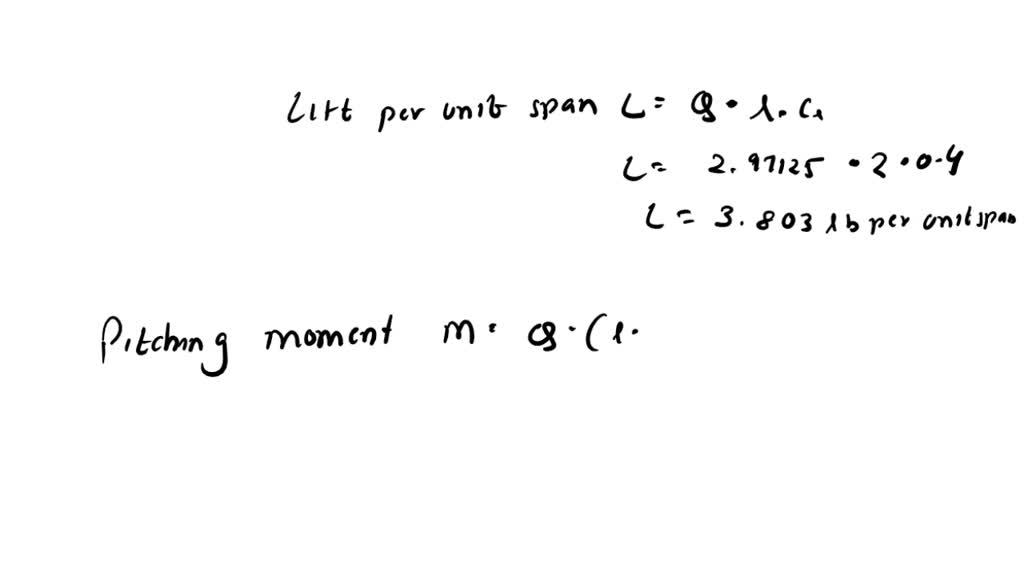 Lift per unit span L = q · l. C₁
L = 2.97125 · 2 · 0.4
L = 3.803 lb per unit span
Pitching moment m = q · (l.